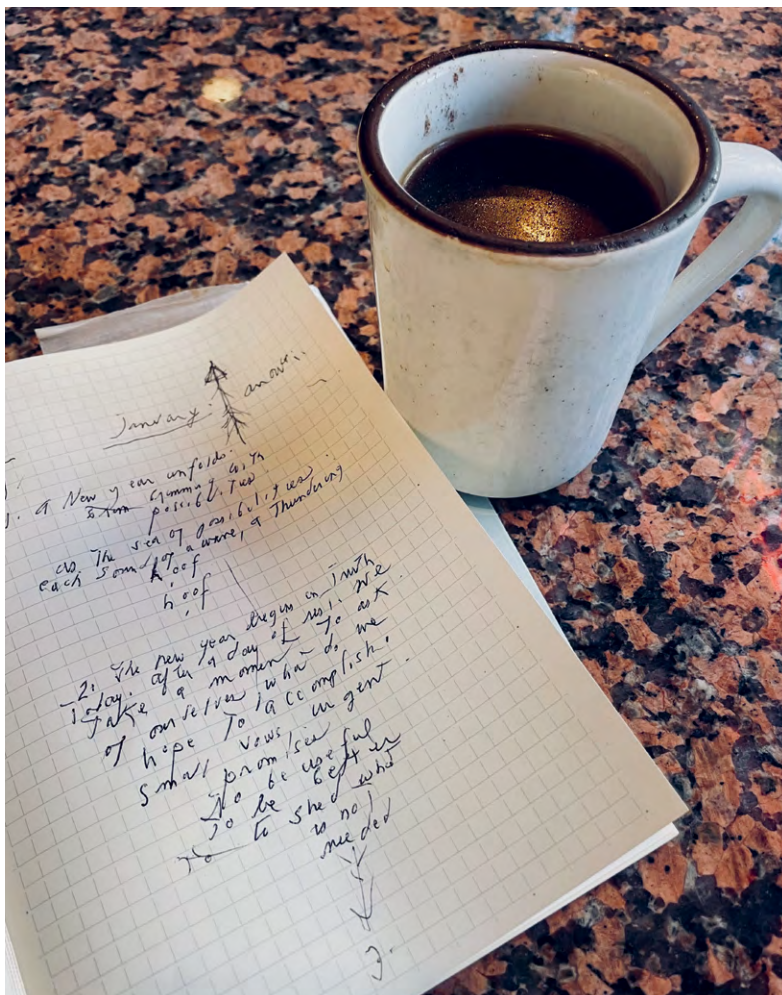 January.
1. A New year unfolds.
Gummut with
possibilities
as. The sea of possibilities
each sound of a wave, a Thundering
hoof
hoof
2. The new year begins in Truth
Today. after a day of rest. we
Take a moment To ask
of ourselves what do we
hope To accomplish.
small vows, urgent
promises
To be useful
To be better
To shed what
is not
needed
3.